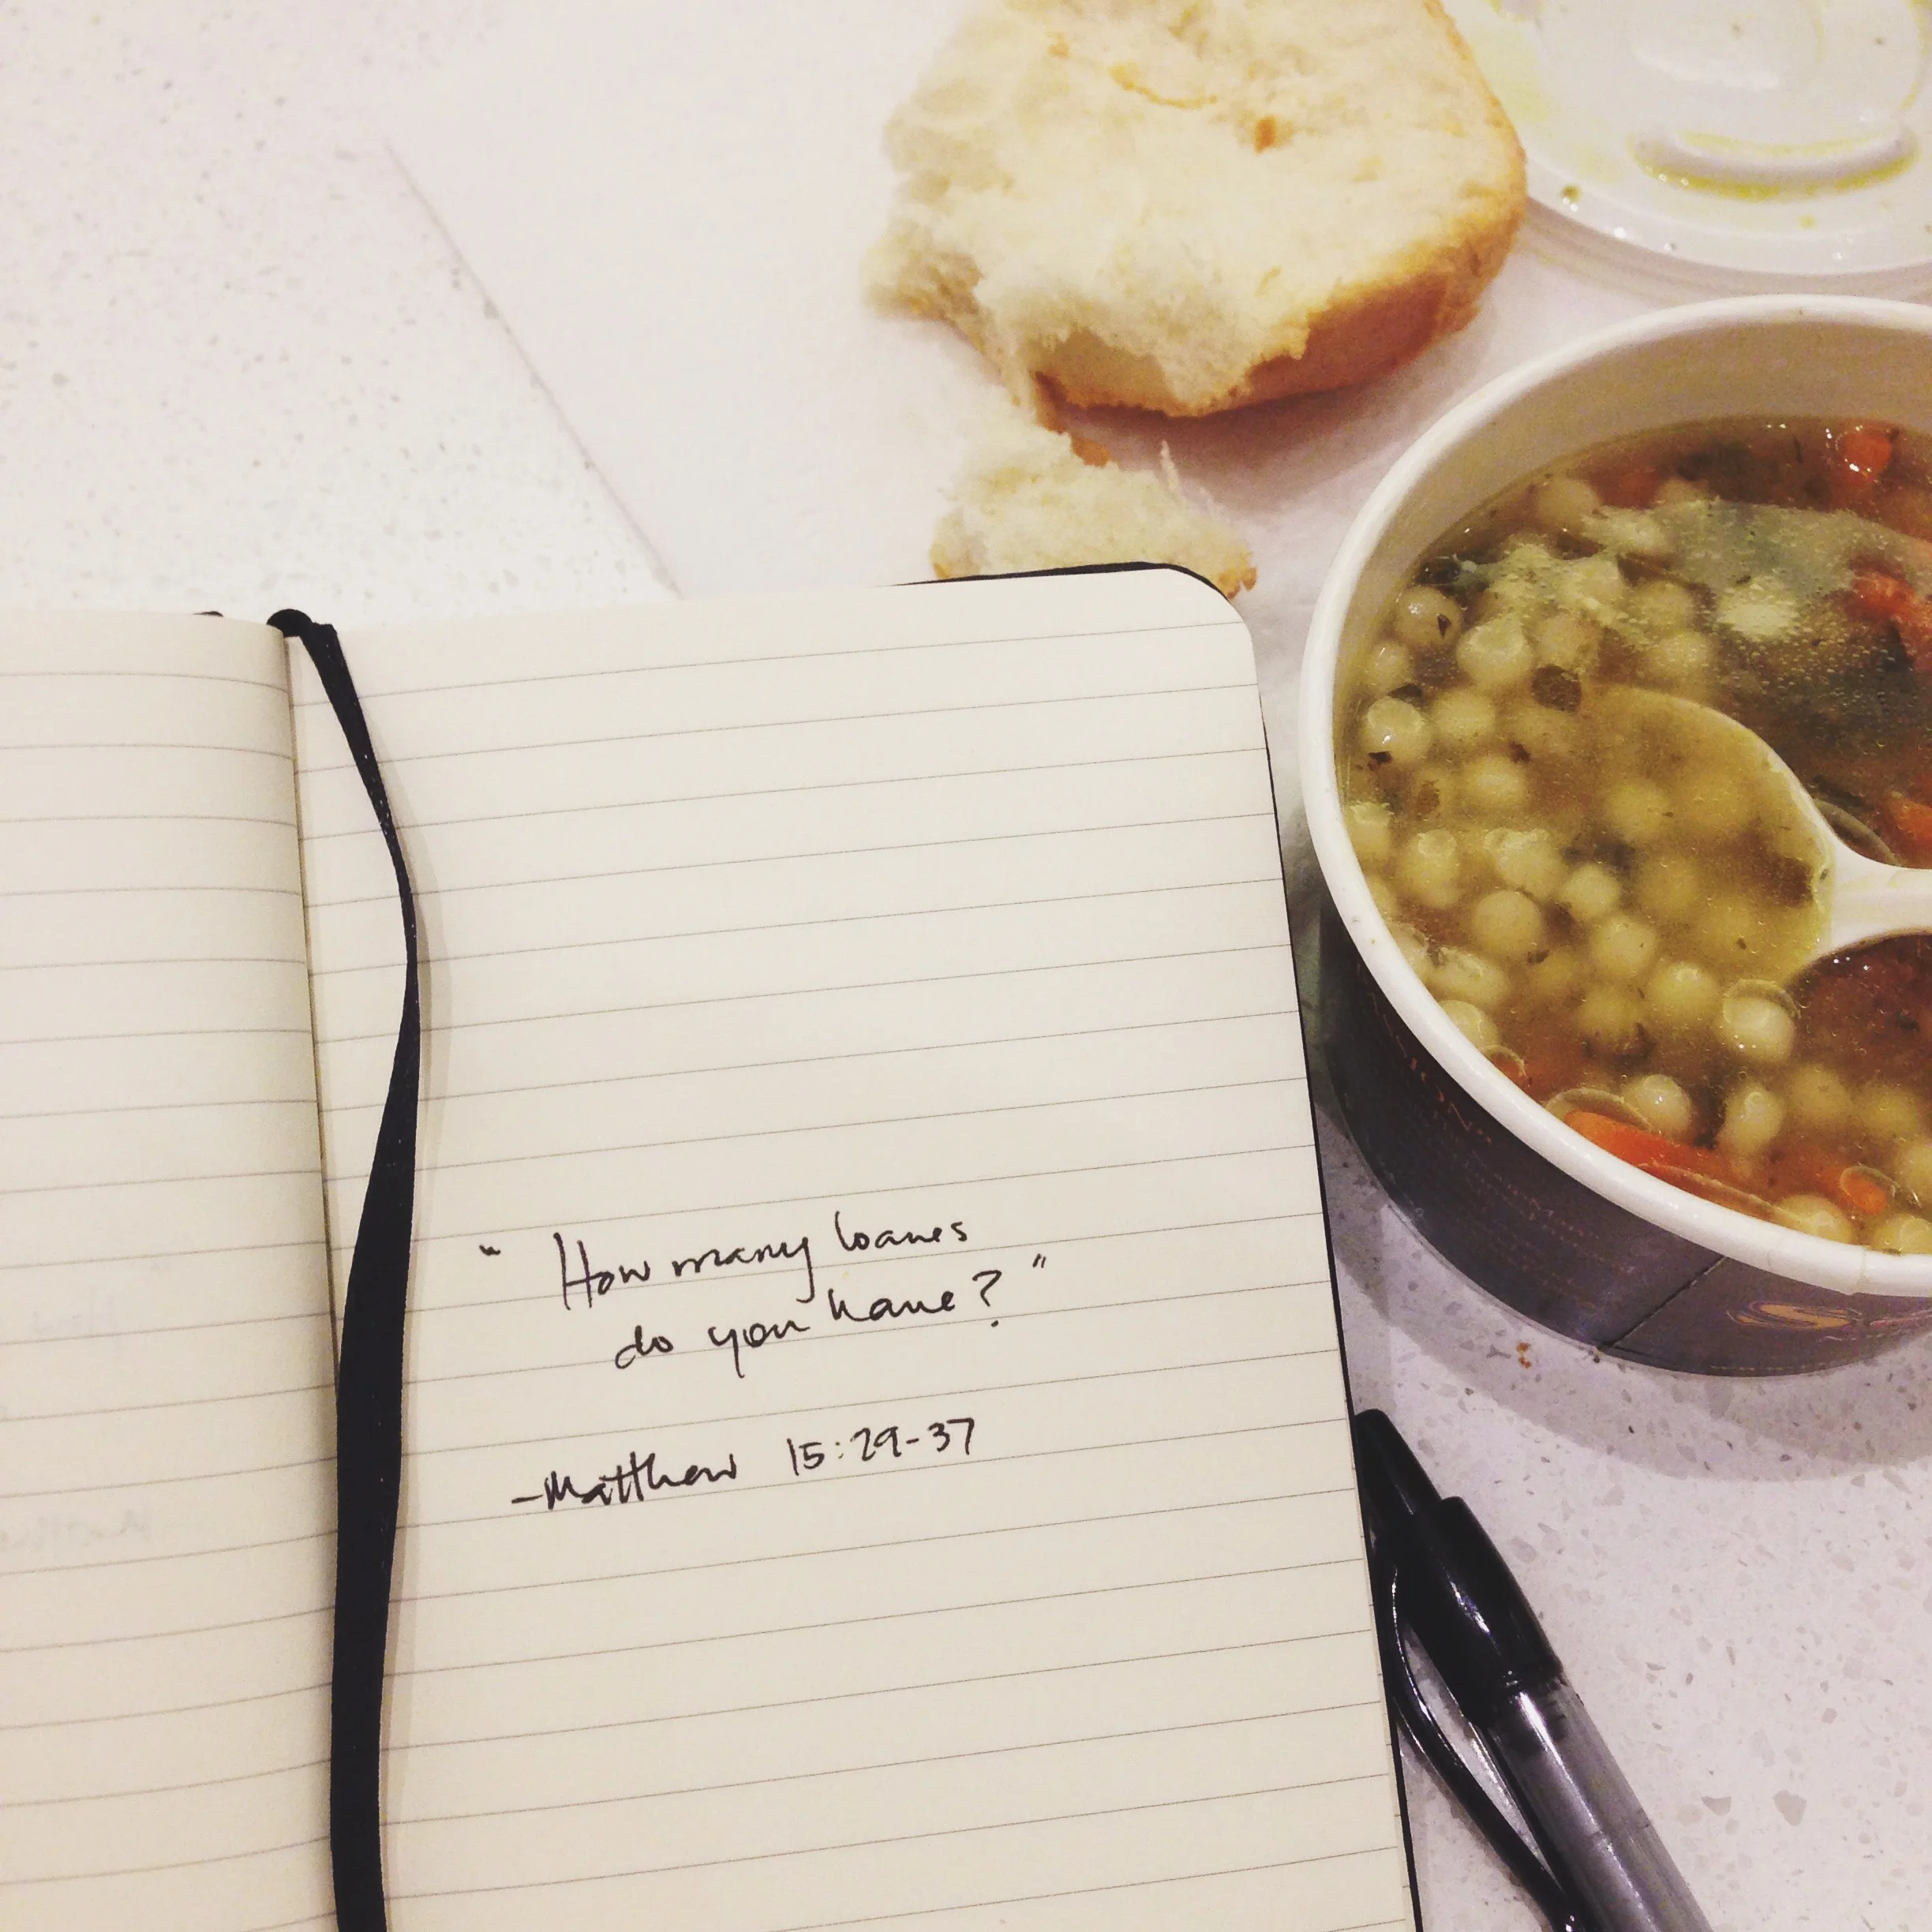 “ How many loaves
do you have? ”
- Matthew 15:29-37